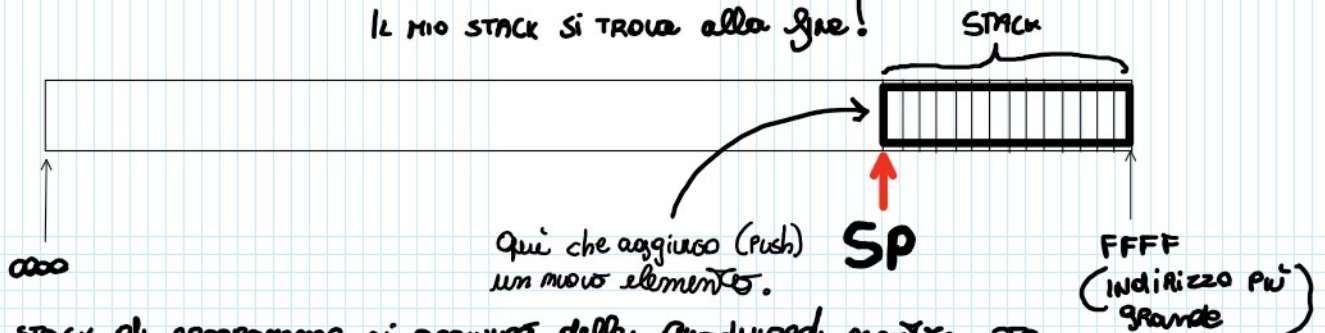 IL MIO STACK SI TROVA alla fine!
STACK
Qui che aggiungo (Push)
un nuovo elemento.
SP
0000
FFFF
(INDIRIZZO PIÙ
GRANDE)